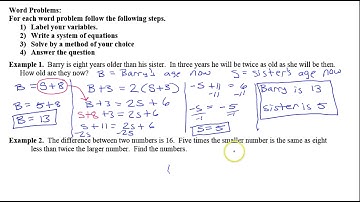 Word Problems:
For each word problem follow the following steps.
1) Label your variables.
2) Write a system of equations
3) Solve by a method of your choice
4) Answer the question
Example 1. Barry is eight years older than his sister. In three years he will be twice as old as she will be then.
How old are they now? B = Barry's age now S = sister's age now
B = S+8
B+3 = 2(S+3)
-S+11 = 6
-11 -11
Barry is 13
B = 5+8
S+3 = 2S+6
-S = -5
-1 -1
sister is 5
B = 13
S+8+3 = 2S+6
S=5
S+11 = 2S+6
-2S -2S
Example 2. The difference between two numbers is 16. Five times the smaller number is the same as eight
less than twice the larger number. Find the numbers.